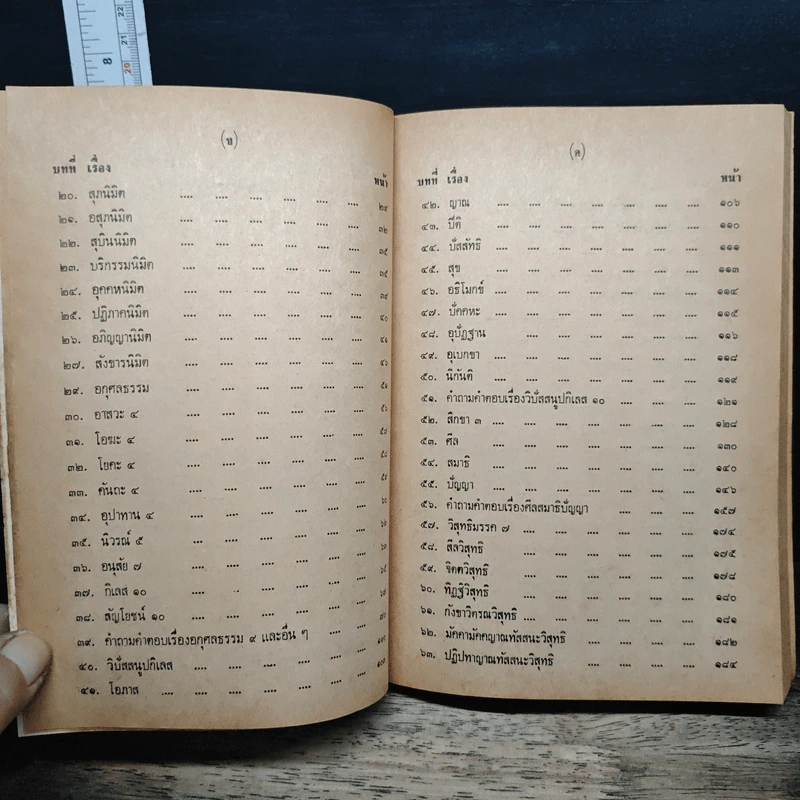 (ข)
บทที่ เรื่อง หน้า
๒๐. สุภนิมิต .... .... .... .... .... .... ๒๙
๒๑. อสุภนิมิต .... .... .... .... .... .... ๓๒
๒๒. สุบินนิมิต .... .... .... .... .... .... ๓๕
๒๓. บริกรรมนิมิต .... .... .... .... .... .... ๓๕
๒๔. อุคคหนิมิต .... .... .... .... .... .... ๓๙
๒๕. ปฏิภาคนิมิต .... .... .... .... .... .... ๔๐
๒๖. อภิญญานิมิต .... .... .... .... .... ....
๒๗. สังขารนิมิต .... .... .... .... .... ....
๒๙. อกุศลธรรม .... .... .... .... .... ....
๓๐. อาสวะ ๔ .... .... .... .... .... ....
๓๑. โอฆะ ๔ .... .... .... .... .... .... ๕๘
๓๒. โยคะ ๔ .... .... .... .... .... ....
๓๓. คันถะ ๔ .... .... .... .... .... ....
๓๔. อุปาทาน ๔ .... .... .... .... .... ....
๓๕. นิวรณ์ ๕ .... .... .... .... .... ....
๓๖. อนุสัย ๗ .... .... .... .... .... ....
๓๗. กิเลส ๑๐ .... .... .... .... .... ....
๓๘. สัญโยชน์ ๑๐ .... .... .... .... .... ....
๓๙. คำถามคำตอบเรื่องอกุศลธรรม ๙ และอื่น ๆ .... ....
๔๐. วิปัสสนูปกิเลส .... .... .... .... ....
๔๑. โอภาส .... .... .... .... .... ....
(ค)
บทที่ เรื่อง หน้า
๔๒. ญาณ .... .... .... .... .... .... ๑๐๖
๔๓. ปีติ .... .... .... .... .... .... ๑๑๐
๔๔. ปัสสัทธิ .... .... .... .... .... .... ๑๑๑
๔๕. สุข .... .... .... .... .... .... ๑๑๓
๔๖. อธิโมกข์ .... .... .... .... .... .... ๑๑๔
๔๗. ปัคคหะ .... .... .... .... .... .... ๑๑๕
๔๘. อุปัฏฐาน .... .... .... .... .... .... ๑๑๖
๔๙. อุเบกขา .... .... .... .... .... .... ๑๑๘
๕๐. นิกันติ .... .... .... .... .... .... ๑๑๙
๕๑. คำถามคำตอบเรื่องวิปัสสนูปกิเลส ๑๐ .... .... .... ๑๒๑
๕๒. สิกขา ๓ .... .... .... .... .... .... ๑๒๘
๕๓. ศีล .... .... .... .... .... .... ๑๓๐
๕๔. สมาธิ .... .... .... .... .... .... ๑๔๐
๕๕. ปัญญา .... .... .... .... .... .... ๑๔๖
๕๖. คำถามคำตอบเรื่องศีลสมาธิปัญญา .... .... .... ๑๕๗
๕๗. วิสุทธิมรรค ๗ .... .... .... .... .... ๑๗๔
๕๘. สีลวิสุทธิ .... .... .... .... .... .... ๑๗๕
๕๙. จิตตวิสุทธิ .... .... .... .... .... .... ๑๗๘
๖๐. ทิฏฐิวิสุทธิ .... .... .... .... .... .... ๑๘๐
๖๑. กังขาวิตรณวิสุทธิ .... .... .... .... .... ๑๘๑
๖๒. มัคคามัคคญาณทัสสนะวิสุทธิ .... .... .... .... ๑๘๒
๖๓. ปฏิปทาญาณทัสสนะวิสุทธิ .... .... .... .... ๑๘๔
8
22
21
20